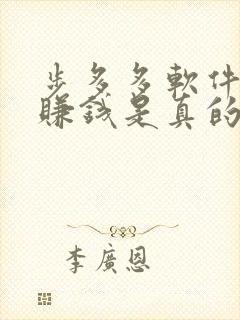 步多多軟件
賺錢是真的
李廣恩